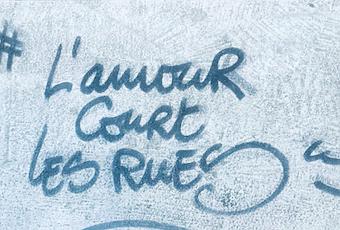 # L'amouR
Court
LES RUES